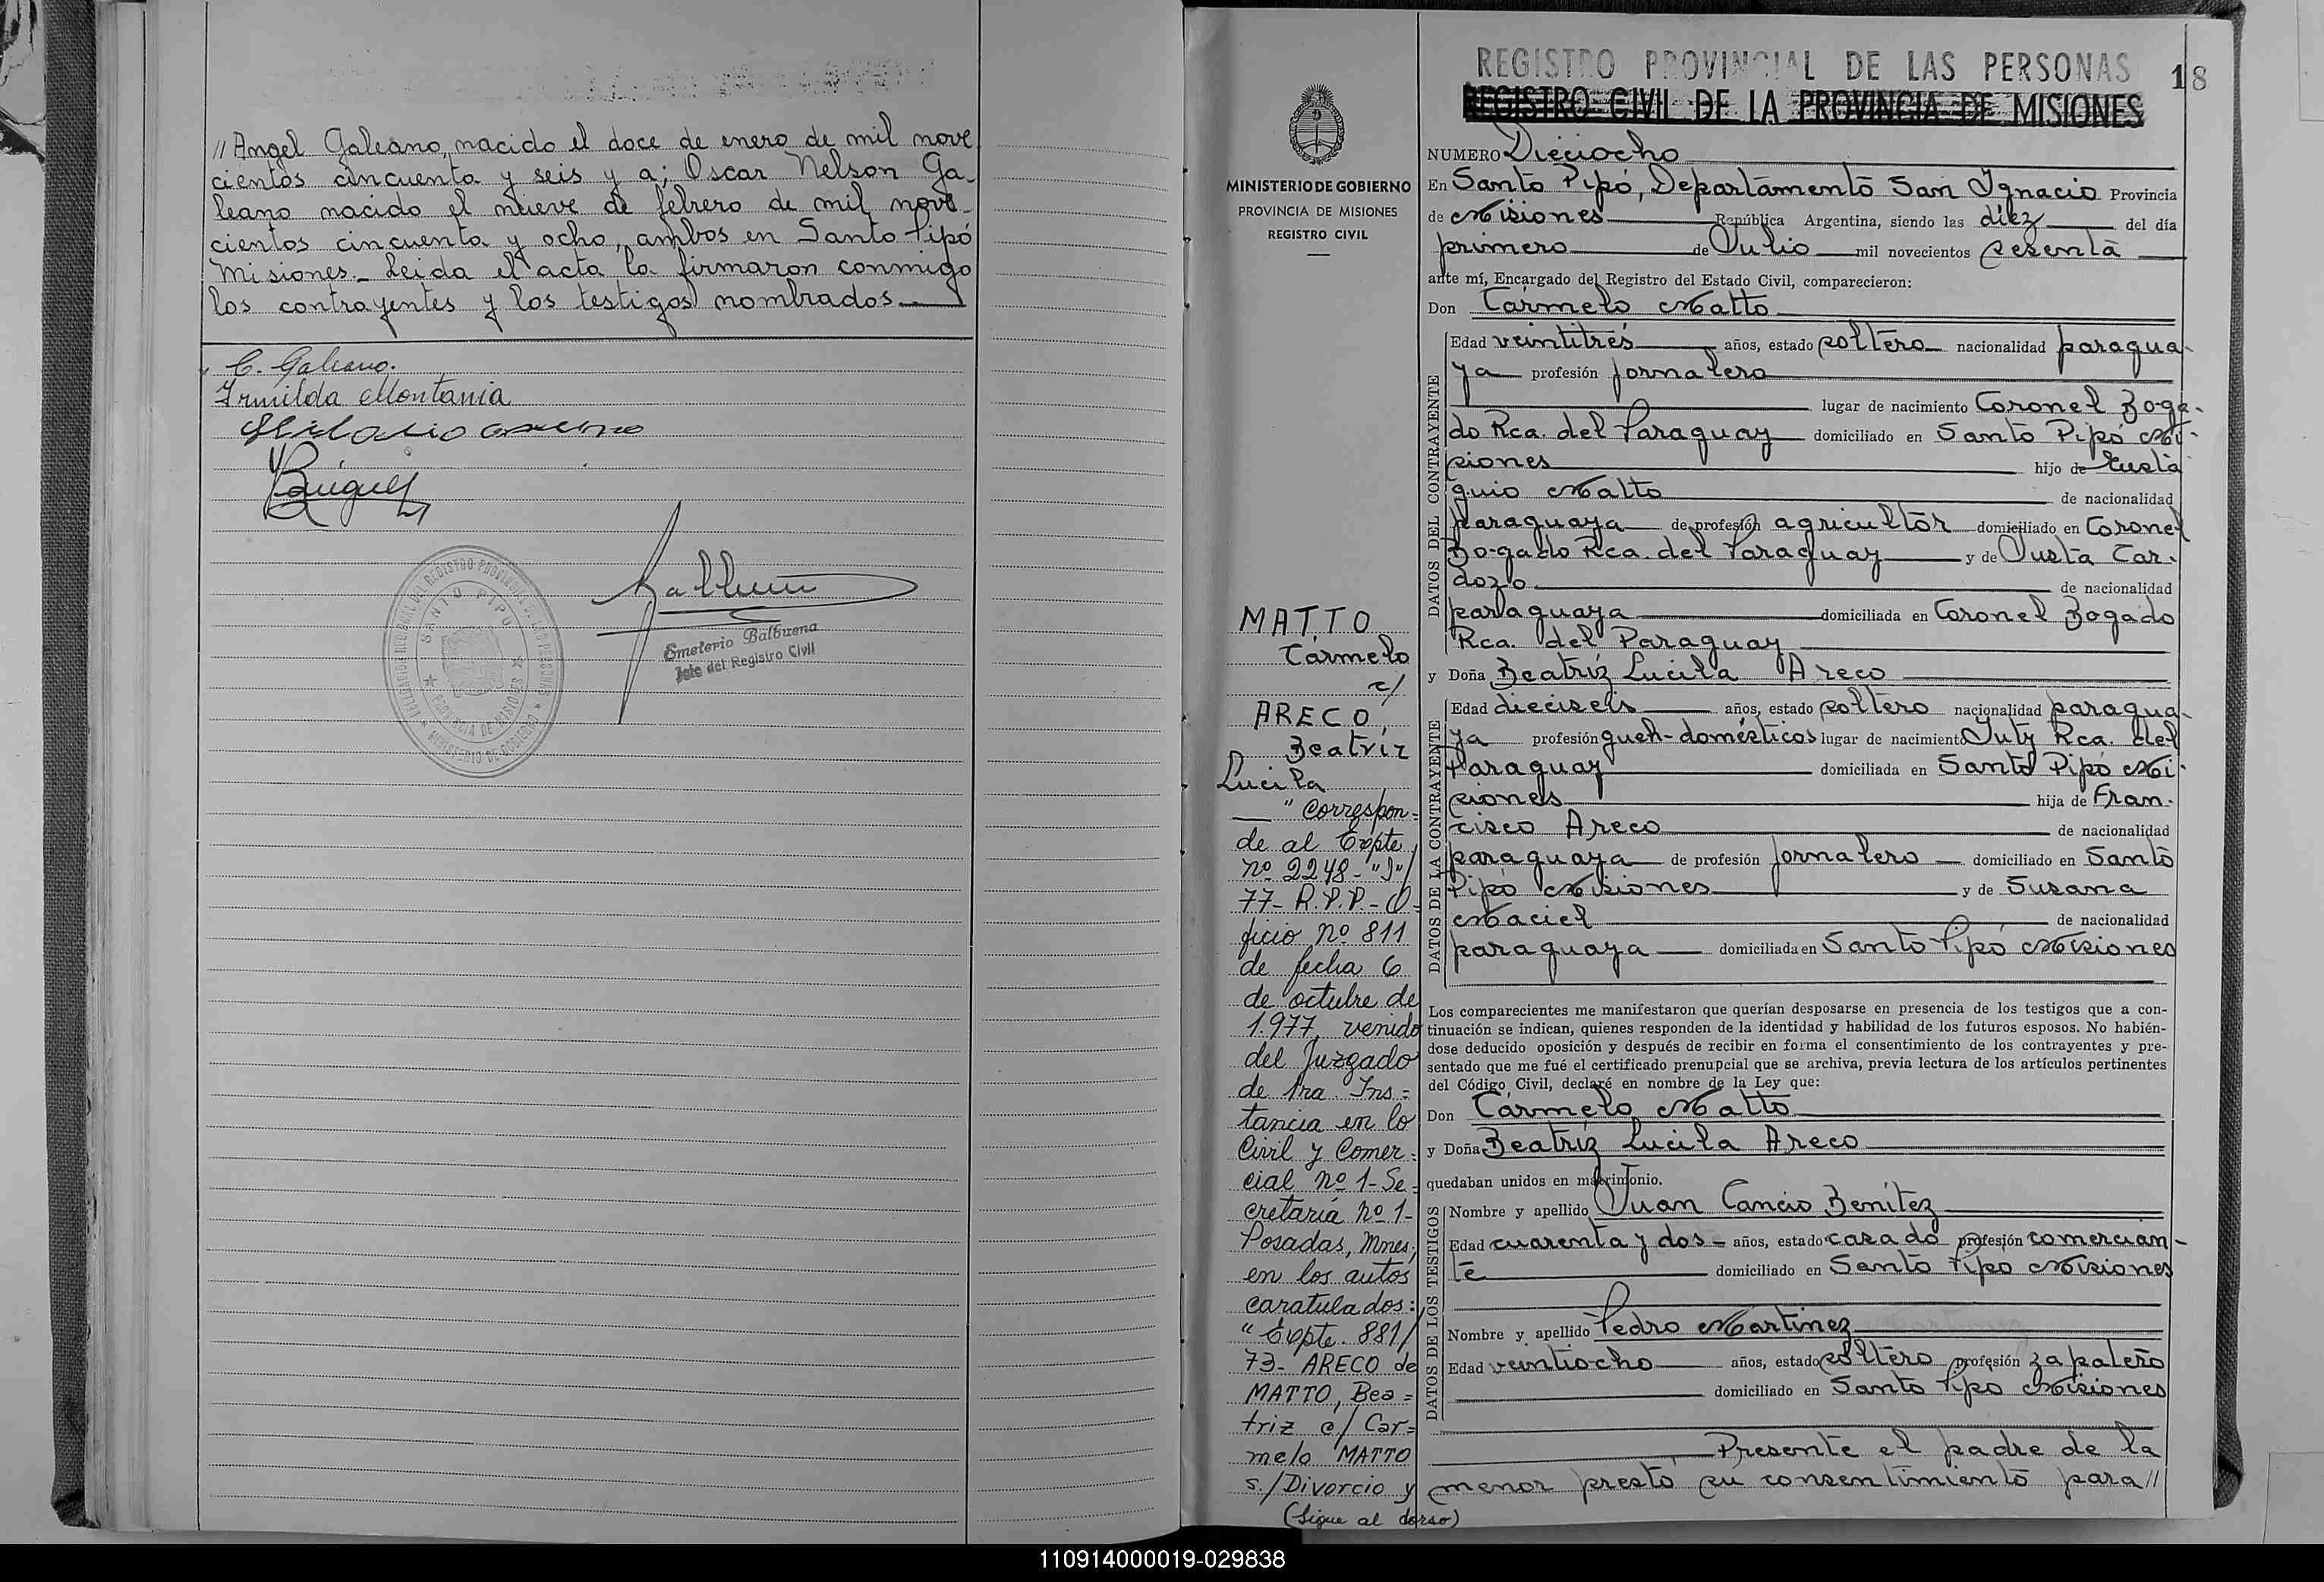 // Angel Galeano, nacido el doce de enero de mil nove
cientos cincuenta y seis y a; Oscar Nelson Ga-
leano nacido el nueve de febrero de mil nove-
cientos cincuenta y ocho, ambos en Santo Pipó
Misiones.- Leida el acta la firmaron conmigo
los contrayentes y los testigos nombrados.
C. Galeano.
Irmilda Montania
SANTO PIPO
PROVINCIA DE MISIONES
MINISTERIO DE GOBIERNO
Emeterio Balbuena
Jefe del Registro Civil
REGISTRO PROVINCIAL DE LAS PERSONAS
18
REGISTRO CIVIL DE LA PROVINCIA DE MISIONES
MINISTERIO DE GOBIERNO
PROVINCIA DE MISIONES
REGISTRO CIVIL
MATTO
Carmelo
c/
ARECO
Beatríz
Lucila
" Correspon=
de al Expte
nº 2248-"J"/
77- R.P.P.- O=
ficio nº 811
de fecha 6
de octubre de
1.977, venido
del Juzgado
de 1ra. Ins=
tancia en lo
Civil y Comer=
cial nº 1-Se=
cretaría nº 1-
Posadas, Mnes,
en los autos
caratulados:
"Expte. 881/
73- ARECO de
MATTO, Bea=
triz c/ Car=
melo MATTO
s./Divorcio y
(Sigue al dorso)
NUMERO Dieciocho
En Santo Pipó, Departamento San Ignacio Provincia
de Misiones República Argentina, siendo las diez del día
primero de Julio mil novecientos sesenta
ante mí, Encargado del Registro del Estado Civil, comparecieron:
Don Carmelo Matto
DATOS DEL CONTRAYENTE
Edad veintitrés años, estado soltero nacionalidad paragua-
ya profesión jornalero
lugar de nacimiento Coronel Boga-
do Rca. del Paraguay domiciliado en Santo Pipó Mi-
siones hijo de Eusta
quio Matto de nacionalidad
paraguaya de profesión agricultor domiciliado en Coronel
Bogado Rca. del Paraguay y de Justa Car-
dozo de nacionalidad
paraguaya domiciliada en Coronel Bogado
Rca. del Paraguay
y Doña Beatríz Lucila Areco
DATOS DE LA CONTRAYENTE
Edad dieciseis años, estado soltero nacionalidad paragua-
ya profesión queh-domésticos lugar de nacimiento Yuty Rca. del
Paraguay domiciliada en Santo Pipó Mi-
siones hija de Fran-
cisco Areco de nacionalidad
paraguaya de profesión jornalero domiciliado en Santo
Pipó Misiones y de Susana
Maciel de nacionalidad
paraguaya domiciliada en Santo Pipó Misiones
Los comparecientes me manifestaron que querían desposarse en presencia de los testigos que a con-
tinuación se indican, quienes responden de la identidad y habilidad de los futuros esposos. No habién-
dose deducido oposición y después de recibir en forma el consentimiento de los contrayentes y pre-
sentado que me fué el certificado prenupcial que se archiva, previa lectura de los artículos pertinentes
del Código Civil, declaré en nombre de la Ley que:
Don Carmelo Matto
y Doña Beatríz Lucila Areco
quedaban unidos en matrimonio.
DATOS DE LOS TESTIGOS
Nombre y apellido Juan Cancio Benítez
Edad cuarenta y dos años, estado casado profesión comercian-
te domiciliado en Santo Pipó Misiones
Nombre y apellido Pedro Martínez
Edad veintiocho años, estado soltero profesión zapatero
domiciliado en Santo Pipó Misiones
Presente el padre de la
menor prestó su consentimiento para //
110914000019-029838